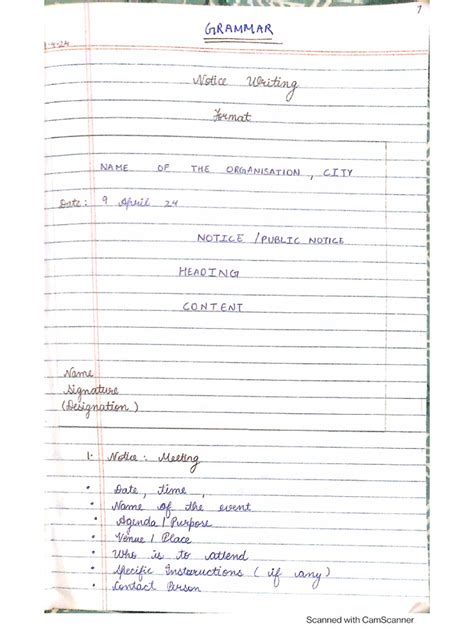 7
GRAMMAR
Notice Writing
Format
NAME OF THE ORGANISATION, CITY
Date: 9 April 24
NOTICE / PUBLIC NOTICE
HEADING
CONTENT
Name
Signature
(Designation)
1. Notice: Meeting
• Date, time,
• Name of the event
• Agenda / Purpose
• Venue / Place
• Who is to attend
• Specific Instructions (if any)
• Contact Person
Scanned with CamScanner